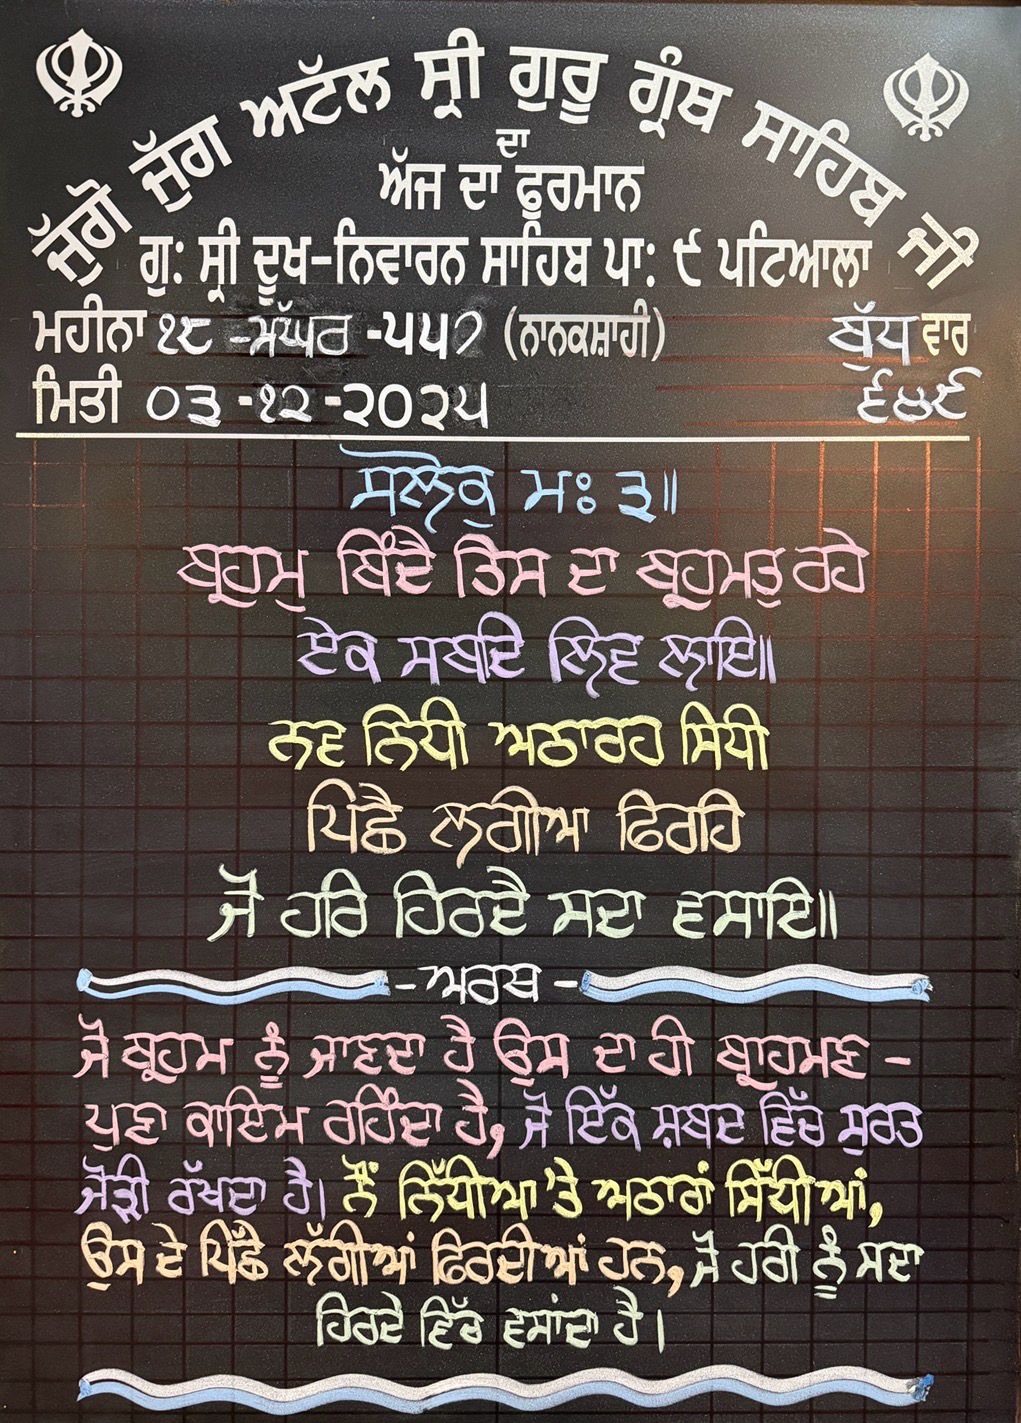 ਜੁੱਗੋ ਜੁੱਗ ਅਟੱਲ ਸ੍ਰੀ ਗੁਰੂ ਗ੍ਰੰਥ ਸਾਹਿਬ ਜੀ
ਦਾ
ਅੱਜ ਦਾ ਫੂਰਮਾਨ
ਗੁ: ਸ੍ਰੀ ਦੂਖ-ਨਿਵਾਰਨ ਸਾਹਿਬ ਪਾ: ੯ ਪਟਿਆਲਾ
ਮਹੀਨਾ ੧੮ -ਮੱਘਰ -੫੫੭ (ਨਾਨਕਸ਼ਾਹੀ) ਬੁੱਧ ਵਾਰ
ਮਿਤੀ ੦੩ -੧੨ -੨੦੨੫ ੬੪੯
ਸਲੋਕੁ ਮਃ ੩॥
ਬ੍ਰਹਮੁ ਬਿੰਦੈ ਤਿਸ ਦਾ ਬ੍ਰਹਮਤੁ ਰਹੇ
ਏਕ ਸਬਦਿ ਲਿਵ ਲਾਇ॥
ਨਵ ਨਿਧੀ ਅਠਾਰਹ ਸਿਧੀ
ਪਿਛੈ ਲਗੀਆ ਫਿਰਹਿ
ਜੋ ਹਰਿ ਹਿਰਦੈ ਸਦਾ ਵਸਾਇ॥
-ਅਰਥ -
ਜੋ ਬ੍ਰਹਮ ਨੂੰ ਜਾਣਦਾ ਹੈ ਉਸ ਦਾ ਹੀ ਬ੍ਰਾਹਮਣ -
ਪੁਣਾ ਕਾਇਮ ਰਹਿੰਦਾ ਹੈ, ਜੋ ਇੱਕ ਸ਼ਬਦ ਵਿੱਚ ਸੁਰਤ
ਜੋੜੀ ਰੱਖਦਾ ਹੈ। ਨੌਂ ਨਿੱਧੀਆ 'ਤੇ ਅਠਾਰਾਂ ਸਿੱਧੀਆਂ,
ਉਸ ਦੇ ਪਿੱਛੈ ਲੱਗੀਆਂ ਫਿਰਦੀਆਂ ਹਨ, ਜੋ ਹਰੀ ਨੂੰ ਸਦਾ
ਹਿਰਦੇ ਵਿੱਚ ਵਸਾਂਦਾ ਹੈ।